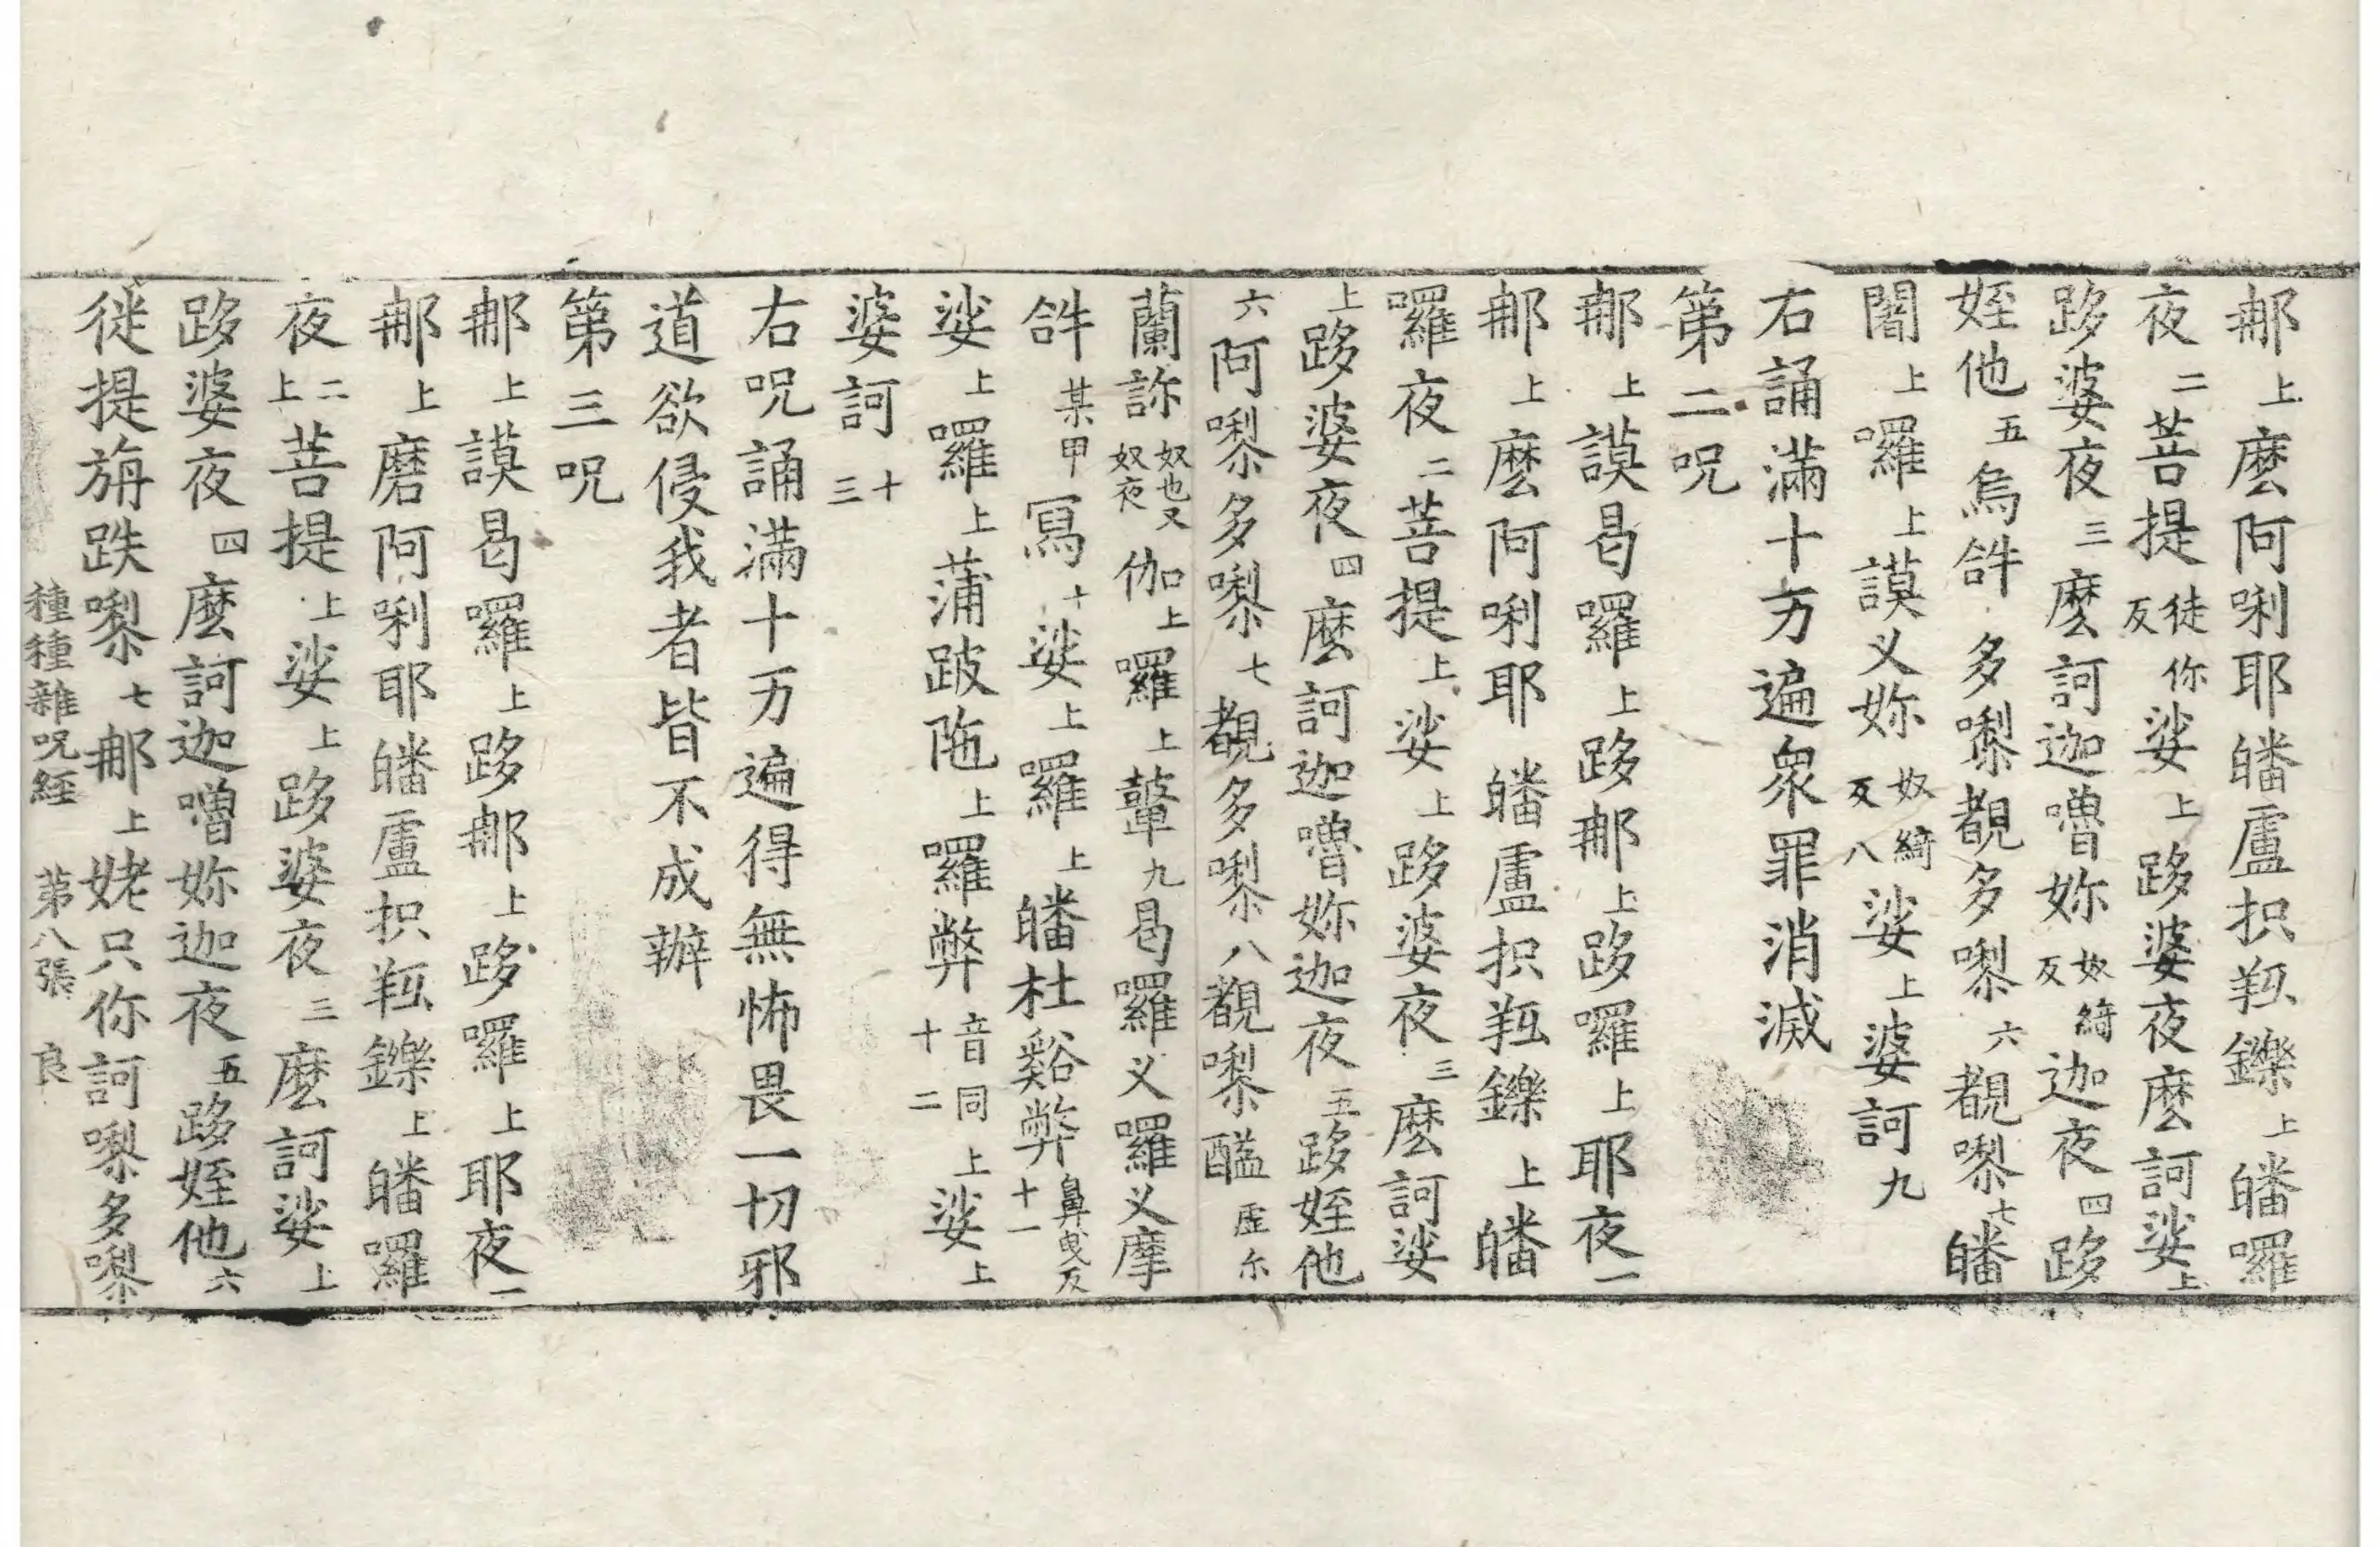 那上麼阿唎耶皤盧抧羝鑠上皤囉
夜二菩提徒你反娑上跢婆夜麼訶娑上
跢婆夜三麼訶迦嚕妳奴綺反迦夜四跢
姪他五烏𤙖多㗚覩多㗚六覩㗚七皤
闍上囉上謨义妳奴綺反八娑上婆訶九
右誦滿十万遍衆罪消滅
第二呪
那上謨曷囉上跢那上跢囉上耶夜一
那上麼阿唎耶皤盧抧羝鑠上皤
囉夜二菩提上娑上跢婆夜三麼訶娑
上跢婆夜四麼訶迦嚕妳迦夜五跢姪他
六阿㗚多㗚七覩多㗚八覩㗚醯虛尔
蘭祢奴也又奴夜伽上囉上鼙九曷囉义囉义摩
𤙖某甲寫十娑上囉上皤杜谿弊鼻曳反十一
娑上囉上蒲跛陁上囉弊音同上十二娑上
婆訶十三
右呪誦滿十万遍得無怖畏一切邪
道欲侵我者皆不成辦
第三呪
那上謨曷囉上跢那上跢囉上耶夜一
那上磨阿唎耶皤盧抧羝鑠上皤囉
夜二上菩提上娑上跢婆夜三麼訶娑上
跢婆夜四麼訶迦嚕妳迦夜五跢姪他六
徙提旃跌㗚七那上姥只你訶㗚多㗚
種種雜呪經 第八張 良